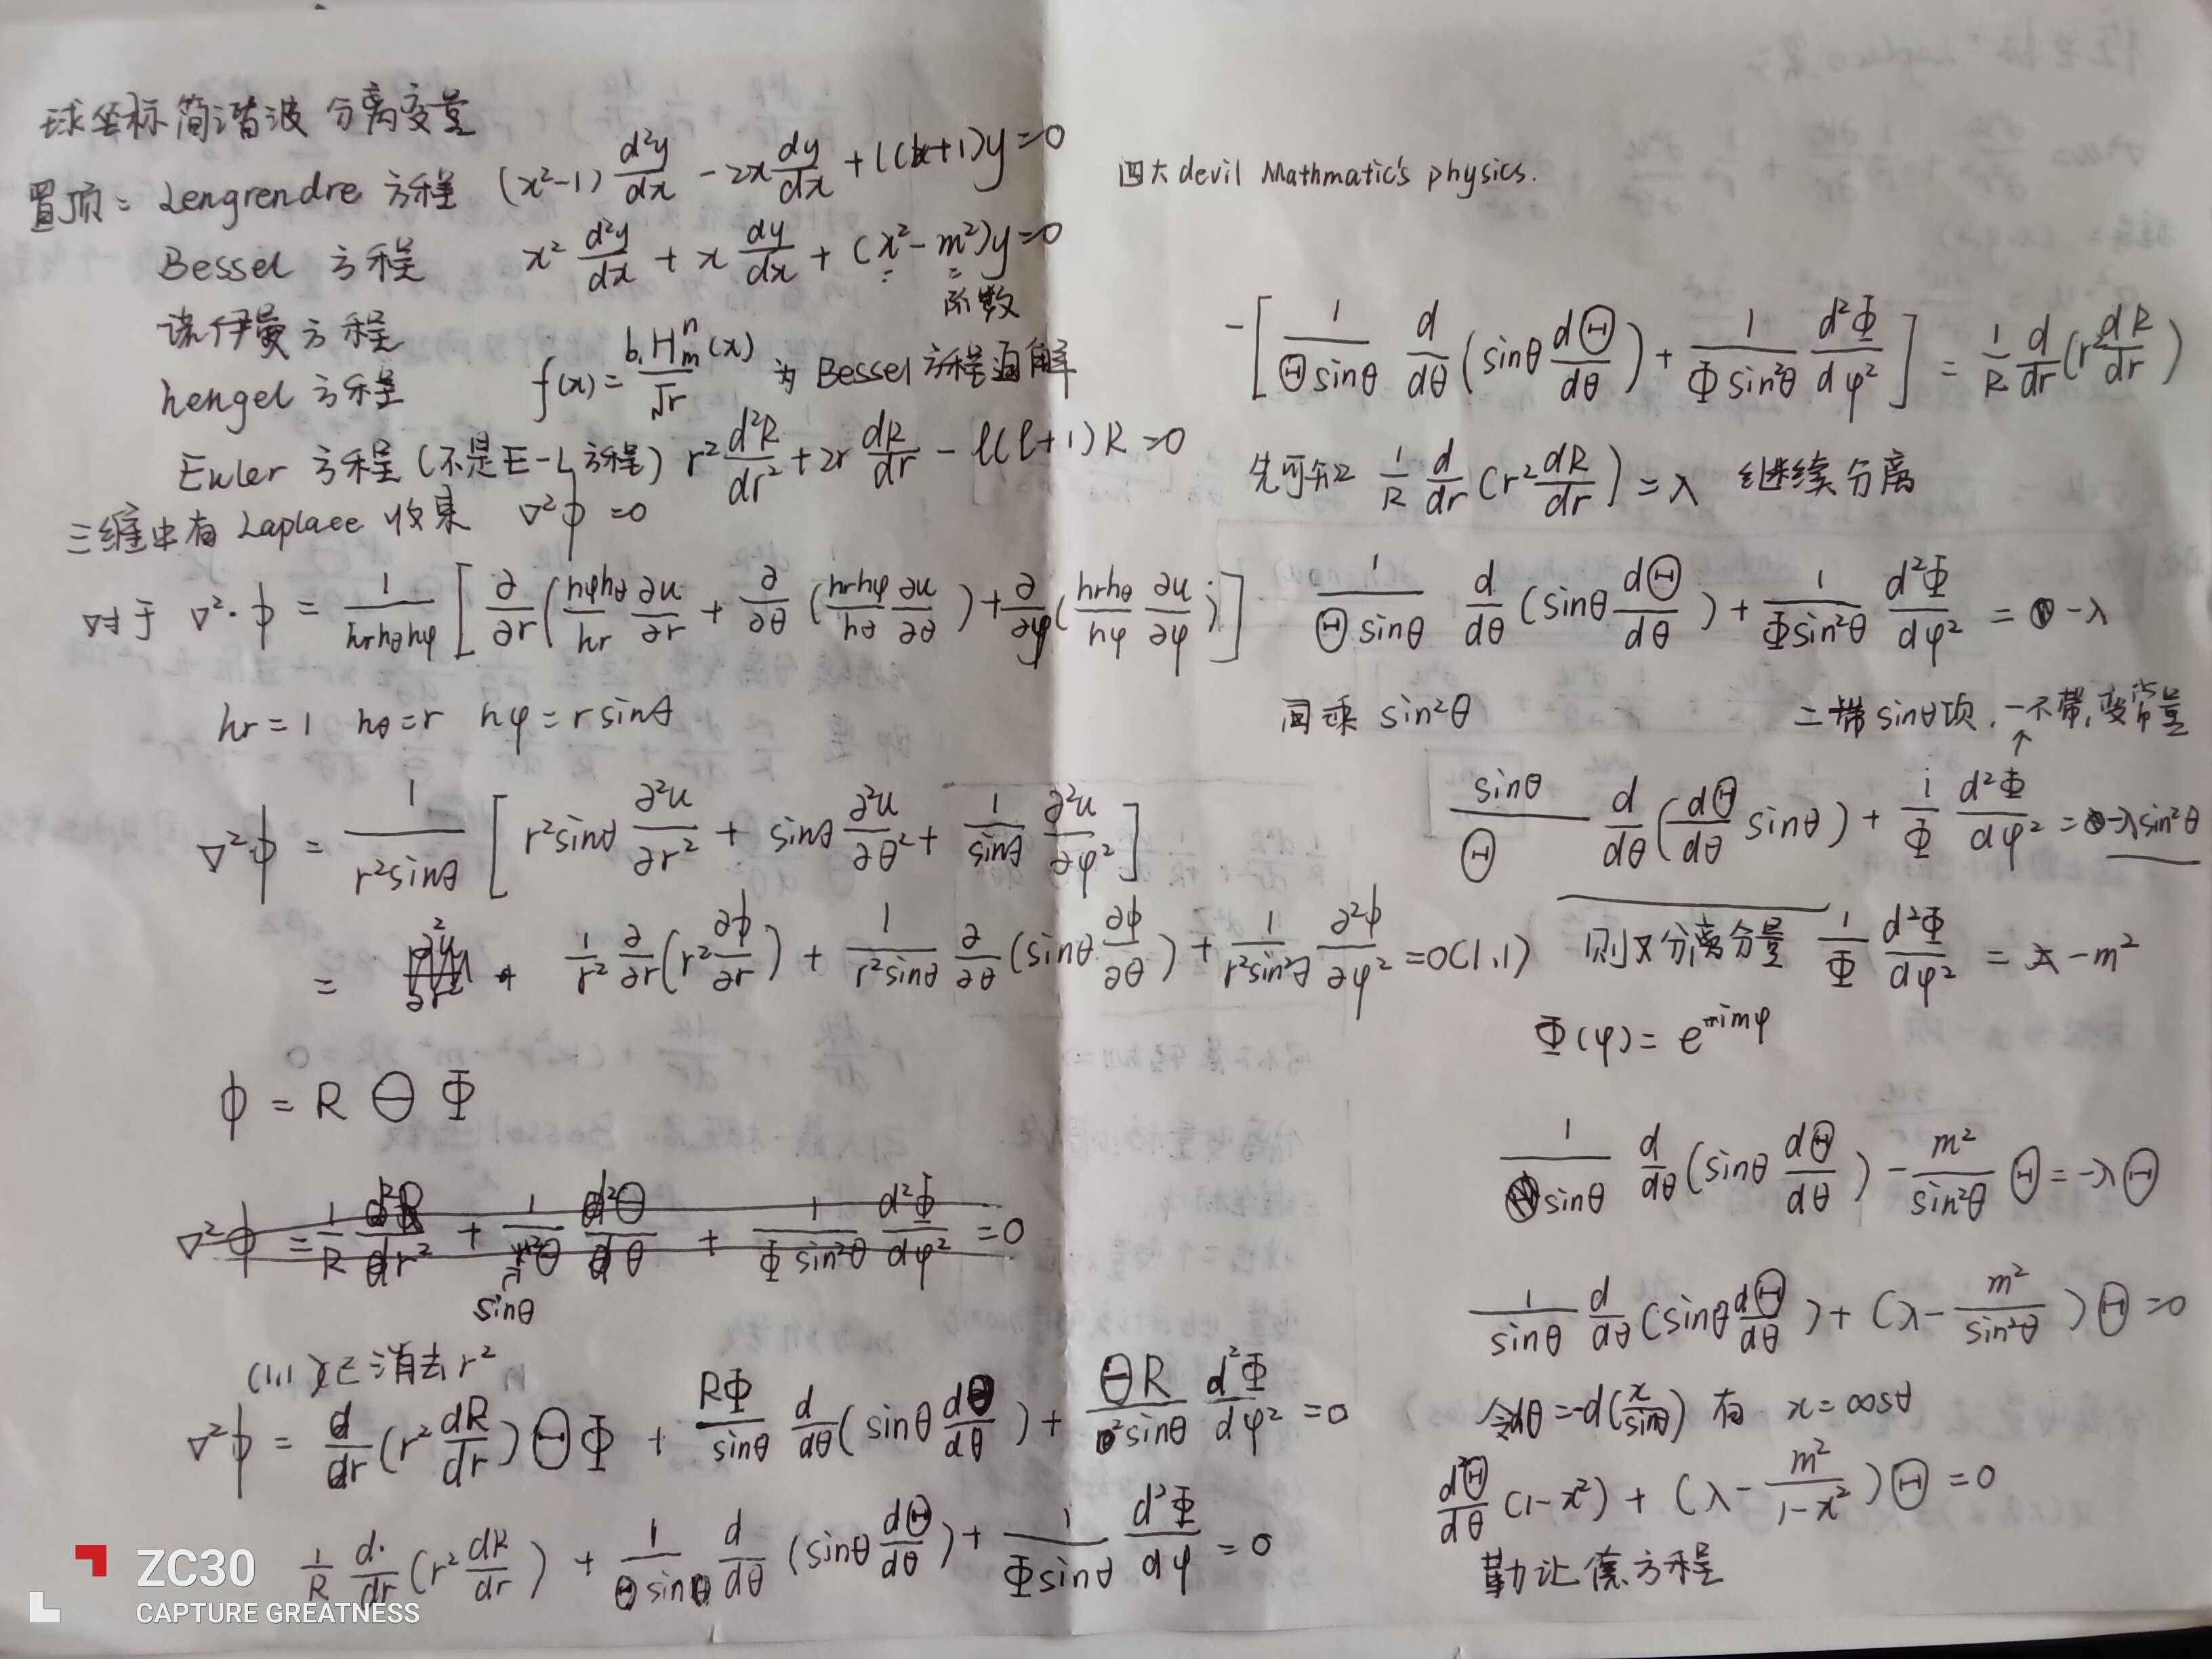 球坐标简谐波 分离变量
置顶: Lengrendre 方程 (x²-1) d²y/dx - 2x dy/dx + l(l+1)y=0
Bessel 方程 x² d²y/dx + x dy/dx + (x²-m²)y=0
阶数
诺伊曼方程
hengel 方程 f(x) = b₁Hₘⁿ(x)/√r 为 Bessel 方程通解
Euler 方程 (不是E-L方程) r² d²R/dr² + 2r dR/dr - l(l+1)R=0
三维中有 Laplace ∇²ϕ=0
对于 ∇²·ϕ = 1/(hr hθ hφ) [∂/∂r (hφhθ/hr ∂u/∂r + ∂/∂θ (hrhφ/hθ ∂u/∂θ) + ∂/∂φ (hrhθ/hφ ∂u/∂φ)]
hr=1 hθ=r hφ=r sinθ
∇²ϕ = 1/(r²sinθ) [r²sinθ ∂²u/∂r² + sinθ ∂²u/∂θ² + 1/sinθ ∂²u/∂φ²]
= 1/r² ∂/∂r (r² ∂ϕ/∂r) + 1/(r²sinθ) ∂/∂θ (sinθ ∂ϕ/∂θ) + 1/(r²sin²θ) ∂²ϕ/∂φ² =0(1.1)
ϕ = R Θ Φ
∇²ϕ = 1/R d²R/dr² + 1/(r²Θ) d²Θ/dθ + 1/(Φ sin²θ) d²Φ/dφ² =0
sinθ
(1.1)已消去r²
∇²ϕ = d/dr (r² dR/dr)ΘΦ + RΦ/sinθ d/dθ (sinθ dΘ/dθ) + ΘR/sin²θ d²Φ/dφ² =0
1/R d/dr (r² dR/dr) + 1/(Θ sinθ) d/dθ (sinθ dΘ/dθ) + 1/(Φ sinθ) d²Φ/dφ =0
ZC30
CAPTURE GREATNESS
四大 devil Mathmatic's physics.
-[1/(Θ sinθ) d/dθ (sinθ dΘ/dθ) + 1/(Φ sin²θ) d²Φ/dφ²] = 1/R d/dr (r² dR/dr)
先可知 1/R d/dr (r² dR/dr) = λ 继续分离
1/(Θ sinθ) d/dθ (sinθ dΘ/dθ) + 1/(Φ sin²θ) d²Φ/dφ² = -λ
同乘 sin²θ 二带sinθ项, 一不带, 变常量
sinθ/Θ d/dθ (dΘ/dθ sinθ) + 1/Φ d²Φ/dφ² = -λ sin²θ
则又分离分量 1/Φ d²Φ/dφ² = -m²
Φ(φ) = e^{-imφ}
1/sinθ d/dθ (sinθ dΘ/dθ) - m²/sin²θ Θ = -λΘ
1/sinθ d/dθ (sinθ dΘ/dθ) + (λ - m²/sin²θ)Θ=0
令dθ=-d(x/sinθ) 有 x=cosθ
d²Θ/dθ (1-x²) + (λ - m²/(1-x²))Θ=0
勒让德方程